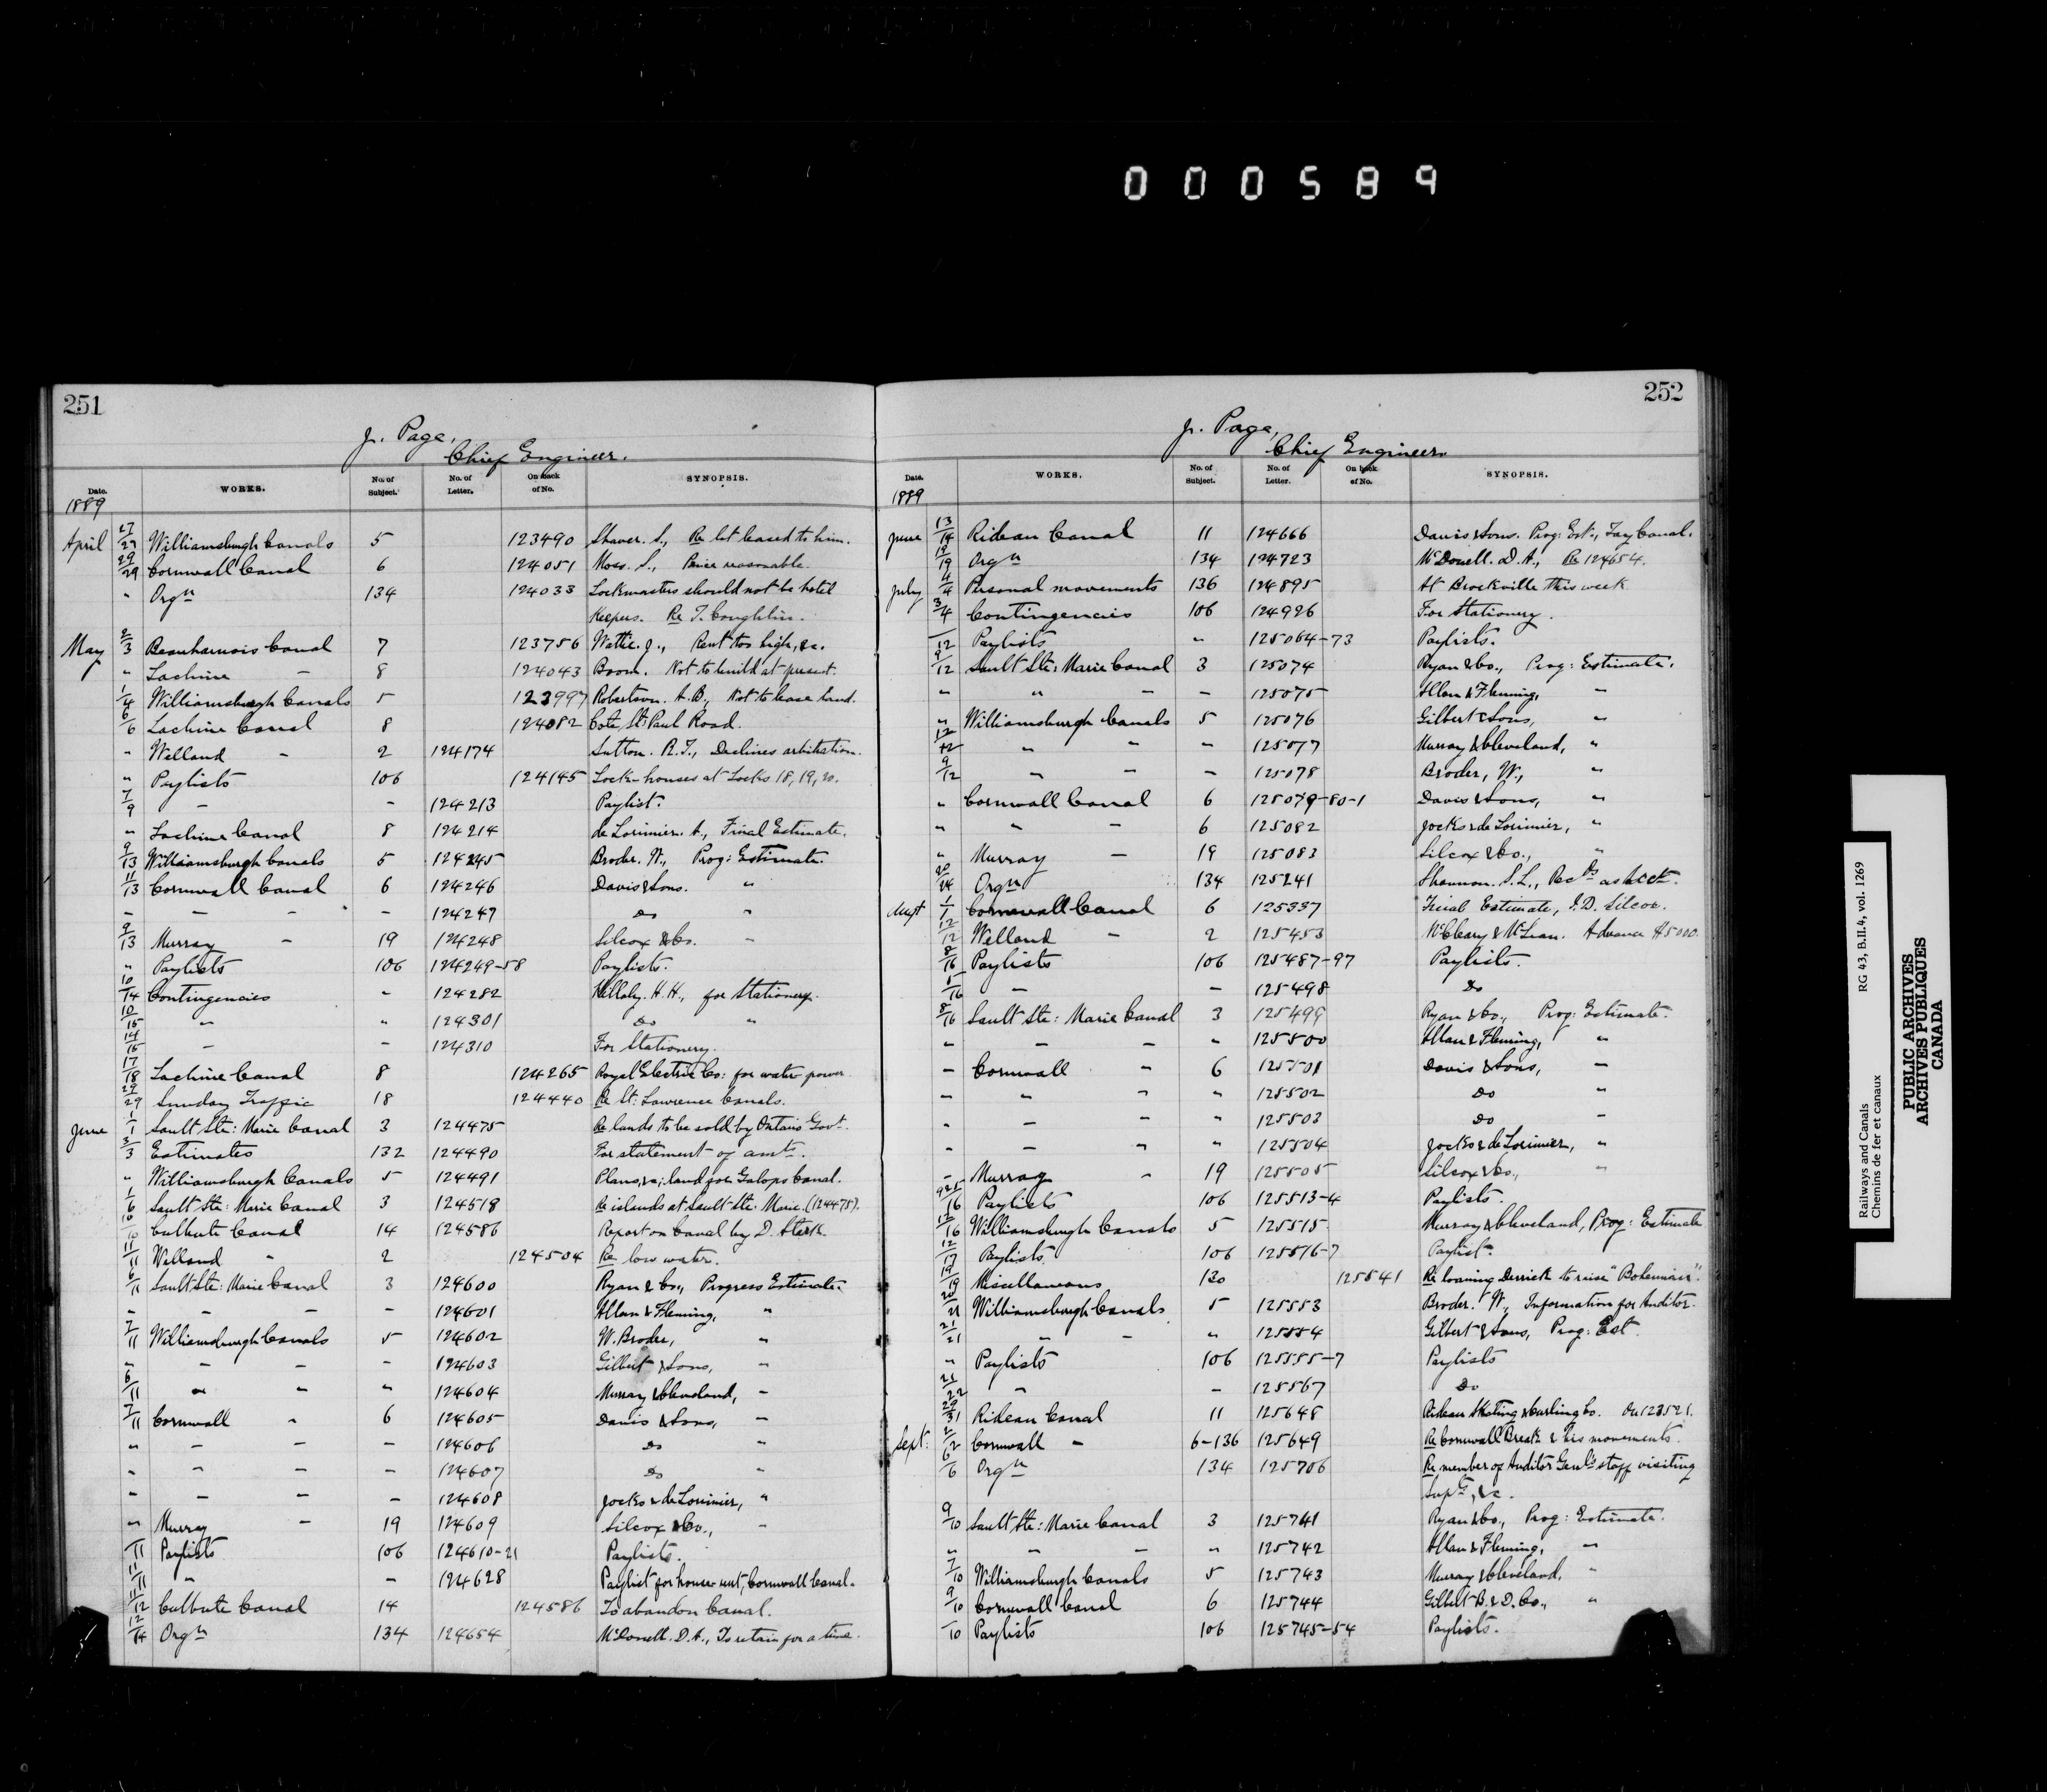 000589
251
J. Page,
Chief Engineer.
Date. WORKS. No. of Subject. No. of Letter. On back of No. SYNOPSIS.
1889
April 27/27 Williamsburgh Canals 5 123490 Shaver. S., Re lot leased to him.
29/29 Cornwall Canal 6 124051 Moss. S., Price reasonable.
" Orgn 134 124033 Lockmasters should not be hotel
Keepers. Re T. Coughlin.
May 2/3 Beauharnois Canal 7 123756 Wattie. J., Rent too high, &c.
" Lachine - 8 124043 Boom. Not to build at present.
1/4 Williamsburgh Canals 5 123997 Robertson. A.B., Not to lease land.
6/6 Lachine Canal 8 124082 Cote St. Paul Road.
" Welland - 2 124174 Sutton. R.T., Declines arbitration.
" Paylists 106 124145 Lock-houses at Locks 18, 19, 20.
7/9 - - 124213 Paylist.
" Lachine Canal 8 124214 de Lorimier. A., Final Estimate.
9/13 Williamsburgh Canals 5 124245 Broder. W., Prog: Estimate.
11/13 Cornwall Canal 6 124246 Davis & Sons. "
- - - - 124247 Do "
9/13 Murray - 19 124248 Silcox & Co. -
" Paylists 106 124249-58 Paylists.
10/14 Contingencies - 124282 H.H., for Stationery.
10/15 " " 124301 Do "
14/15 - - 124310 For Stationery.
17/18 Lachine Canal 8 124265 Royal Electric Co: for water power.
29/29 Sunday Traffic 18 124440 Re St. Lawrence Canals.
June 1/1 Sault Ste: Marie Canal 3 124475 Re lands to be sold by Ontario Govt.
3/3 Estimates 132 124490 For statement of amts.
" Williamsburgh Canals 5 124491 Plans, &c; land for Galops Canal.
1/6 Sault Ste: Marie Canal 3 124518 Re islands at Sault Ste: Marie. (124475).
10/10 Culbute Canal 14 124586 Report on Canal by D. Stark.
11/11 Welland " 2 124504 Re low water.
6/11 Sault Ste: Marie Canal 3 124600 Ryan & Co., Progress Estimate.
- - - - 124601 Allan & Fleming, "
7/11 Williamsburgh Canals 5 124602 W. Broder, "
" - - - 124603 Gilbert & Sons, "
6/11 " - " 124604 Murray & Cleveland, -
7/11 Cornwall " 6 124605 Davis & Sons, -
" - - - 124606 Do "
" - - - 124607 Do "
" - - - 124608 Jocks & de Lorimier, "
" Murray - 19 124609 Silcox & Co., -
/11 Paylists 106 124610-21 Paylists.
11/11 " - 124628 Paylist for house rent, Cornwall Canal.
11/12 Culbute Canal 14 124586 To abandon Canal.
12/14 Orgn 134 124654 McDonell. D.A., To retain for a time.
252
J. Page,
Chief Engineer
Date. WORKS. No. of Subject. No. of Letter. On back of No. SYNOPSIS.
1889
June 13/14 Rideau Canal 11 124666 Davis & Sons. Prog: Est:, Tay Canal.
19/19 Orgn 134 124723 McDonell. D.A., Re 124654.
July 4/4 Personal movements 136 124895 At Brockville this week
3/4 Contingencies 106 124926 For Stationery.
/12 Paylists " 125064-73 Paylists.
9/12 Sault Ste: Marie Canal 3 125074 Ryan & Co., Prog: Estimate.
" " - - 125075 Allan & Fleming, "
" Williamsburgh Canals 5 125076 Gilbert & Sons, "
12/12 " " - 125077 Murray & Cleveland, "
9/12 - - - 125078 Broder, W., "
" Cornwall Canal 6 125079-80-1 Davis & Sons, "
" " - 6 125082 Jocks & de Lorimier, "
" Murray - 19 125083 Silcox & Co., "
20/24 Orgn 134 125241 Shannon. S.L., as Acct.
Augt 1/1 Cornwall Canal 6 125337 Final Estimate, I.D. Silcox.
12/12 Welland - 2 125453 McCleary & McLean. Advance $5000.
8/16 Paylists 106 125487-97 Paylists.
/16 - - 125498 Do
8/16 Sault Ste: Marie Canal 3 125499 Ryan & Co., Prog: Estimate.
- - - " 125500 Allan & Fleming, "
- Cornwall - 6 125501 Davis & Sons, -
- " " " 125502 Do "
- - " " 125503 Do -
- - " " 125504 Jocks & de Lorimier, "
- Murray " 19 125505 Silcox & Co., "
/16 Paylists 106 125513-4 Paylists.
12/16 Williamsburgh Canals 5 125515 Murray & Cleveland, Prog: Estimate
12/17 Paylists 106 125516-7 Paylist.
19/19 Miscellaneous 130 125541 Re loaning Derrick to raise "Bohemian".
20/21 Williamsburgh Canals 5 125553 Broder. W., Information for Auditor.
21/21 - - " 125554 Gilbert & Sons, Prog: Est.
" Paylists 106 125555-7 Paylists
21/22 " - 125567 Do
29/31 Rideau Canal 11 125648 Rideau Skating & Curling Co. On 123521.
Sept: 2/2 Cornwall - 6-136 125649 Re Cornwall Break & his movements.
6/6 Orgn 134 125706 Re member of Auditor Genl's staff visiting
Supt, &c.
9/10 Sault Ste: Marie Canal 3 125741 Ryan & Co., Prog: Estimate.
" - - " 125742 Allan & Fleming, "
7/10 Williamsburgh Canals 5 125743 Murray & Cleveland, "
9/10 Cornwall Canal 6 125744 Gilbert B. & D. Co., "
/10 Paylists 106 125745-54 Paylists.
Railways and Canals RG 43, B.II.4, vol. 1269
Chemins de fer et canaux
PUBLIC ARCHIVES
ARCHIVES PUBLIQUES
CANADA